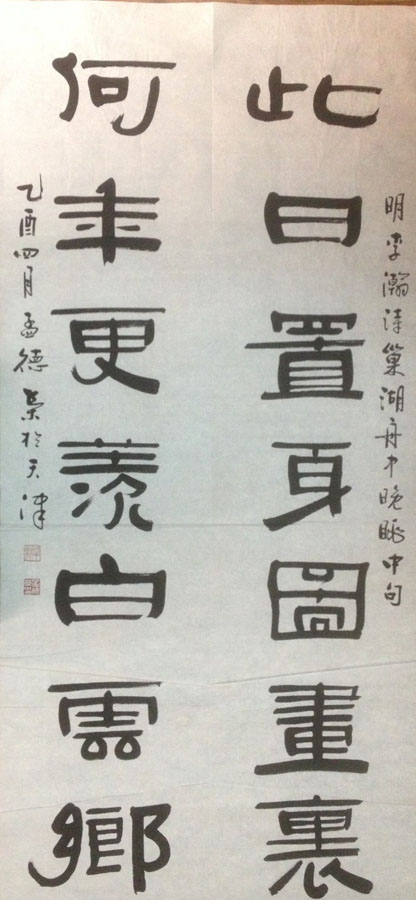 明李瀚诗巢湖舟中晚眺中句
此日置身圖畫裏
何年更羨白雲鄉
乙酉四月孟德荣於天津